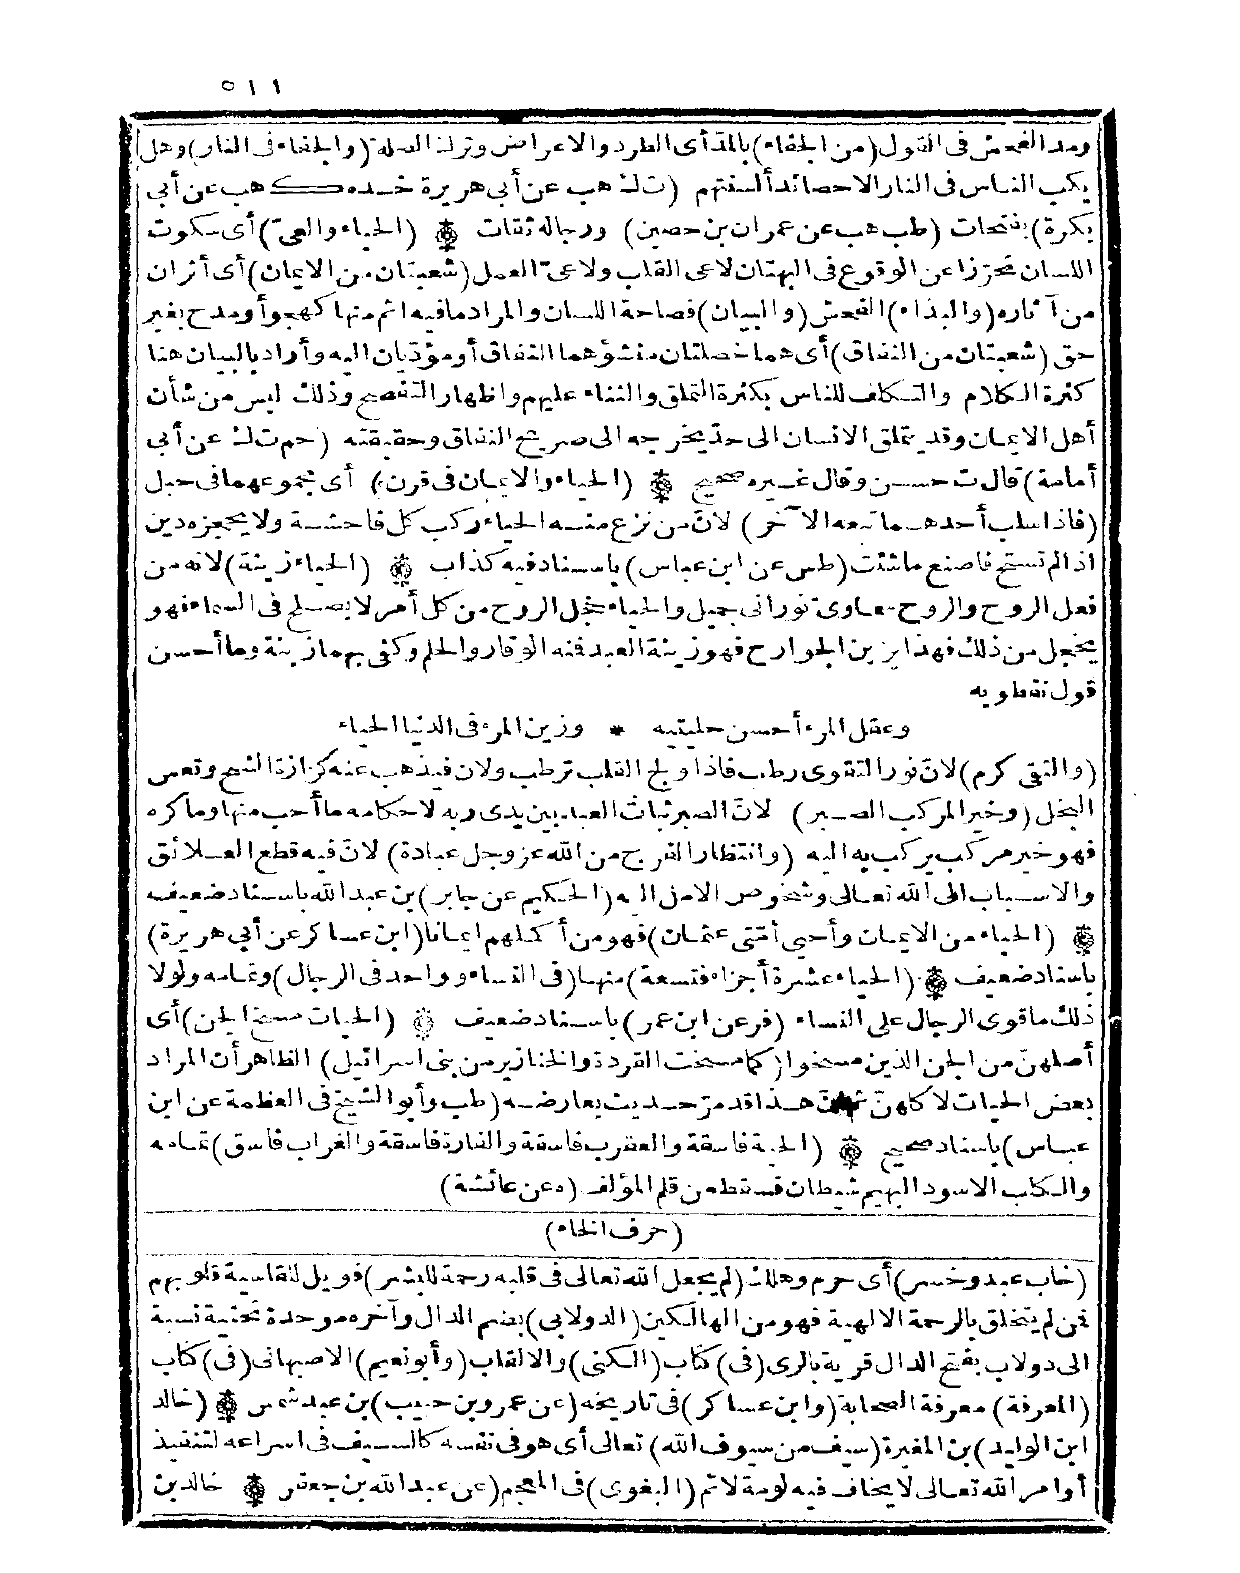 ٥١١
ومد الفحش فى القول (من الجفاء) بالمد أى الطرد والاعراض وترك الصلة (والجفاء فى النار) وهل
يكب الناس فى النار الا حصائد ألسنتهم (ت ك هب عن أبى هريرة خد ه ك هب عن أبى
بكرة) بفتحات (طب هب عن عمران بن حصين) ورجاله ثقات ۞ (الحياء والعىّ) أى سكوت
اللسان تحرّزا عن الوقوع فى البهتان لا عى القلب ولا عىّ العمل (شعبتان من الايمان) أى أثران
من آثاره (والبذاء) الفحش (والبيان) فصاحة اللسان والمراد ما فيه اثم منها كهجو أو مدح بغير
حق (شعبتان من النفاق) أى هما خصلتان منشؤهما النفاق أو مؤدّيان اليه وأراد بالبيان هنا
كثرة الكلام والتكلف للناس بكثرة التملق والثناء عليهم واظهار التفصح وذلك ليس من شأن
أهل الايمان وقد يتملق الانسان الى حدّ يخرجه الى صريح النفاق وحقيقته (حم ت ك عن أبى
أمامة) قال ت حسن وقال غيره صحيح ۞ (الحياء والايمان فى قرن) أى مجموعهما فى حبل
(فاذا سلب أحدهما تبعه الآخر) لانّ من نزع منه الحياء ركب كل فاحشة ولا يحجزه دين
اذا لم تستح فاصنع ما شئت (طس عن ابن عباس) باسناد فيه كذاب ۞ (الحياء زينة) لانه من
فعل الروح والروح سماوىّ نورانى جميل والحياء خجل الروح من كل أمر لا يصلح فى السماء فهو
يخجل من ذلك فهذا يزين الجوارح فهو زينة العبد فنه الوقار والحلم وكفى بهما زينة وما أحسن
قول نفطويه
وعقل المرء أحسن حليتيه * وزين المرء فى الدنيا الحياء
(والتقى كرم) لانّ نور التقوى رطب فاذا ولج القلب ترطب ولان فيذهب عنه كزازة الشح وتعس
البخل (وخير المركب الصبر) لانّ الصبر ثبات العبد بين يدى ربه لاحكامه ما أحب منها وما كره
فهو خير مركب يركب به اليه (وانتظار الفرج من الله عز وجل عبادة) لانّ فيه قطع العلائق
والاسباب الى الله تعالى وشخوص الامل اليه (الحكيم عن جابر) بن عبد الله باسناد ضعيف
۞ (الحياء من الايمان وأحيى أمّتى عثمان) فهو من أكملهم ايمانا (ابن عساكر عن أبى هريرة)
باسناد ضعيف ۞ (الحياء عشرة أجزاء فتسعة) منها (فى النساء وواحد فى الرجال) وتمامه ولولا
ذلك ما قوى الرجال على النساء (فر عن ابن عمر) باسناد ضعيف ۞ (الحيات مسخ الجن) أى
أصلهنّ من الجن الذين مسخوا (كما مسخت القردة والخنازير من بنى اسرائيل) الظاهر أن المراد
بعض الحيات لا كلهنّ هذا قد مرّ حديث يعارضه (طب وأبو الشيخ فى العظمة عن ابن
عباس) باسناد صحيح ۞ (الحية فاسقة والعقرب فاسقة والفارة فاسقة والغراب فاسق) تمامه
والكلب الاسود البهيم شيطان فسقط من قلم المؤلف (ه عن عائشة)
(حرف الخاء)
(خاب عبد وخسر) أى حرم وهلك (لم يجعل الله تعالى فى قلبه رحمة للبشر) فويل للقاسية قلوبهم
فمن لم يتخلق بالرحمة الالهية فهو من الهالكين (الدولابى) بضم الدال وآخره موحدة تحتية نسبة
الى دولاب بفتح الدال قرية بالرى (فى) كتاب (الكنى) والالقاب (وأبو نعيم) الاصبهانى (فى) كتاب
(المعرفة) معرفة الصحابة (وابن عساكر) فى تاريخه (عن عمرو بن حبيب) بن عبد شمس ۞ (خالد
ابن الوليد) بن المغيرة (سيف من سيوف الله) تعالى أى هو فى نفسه كالسيف فى اسراعه لتنفيذ
أوامر الله تعالى لا يخاف فيه لومة لائم (البغوى) فى المعجم (عن عبد الله بن جعفر ۞ خالد بن